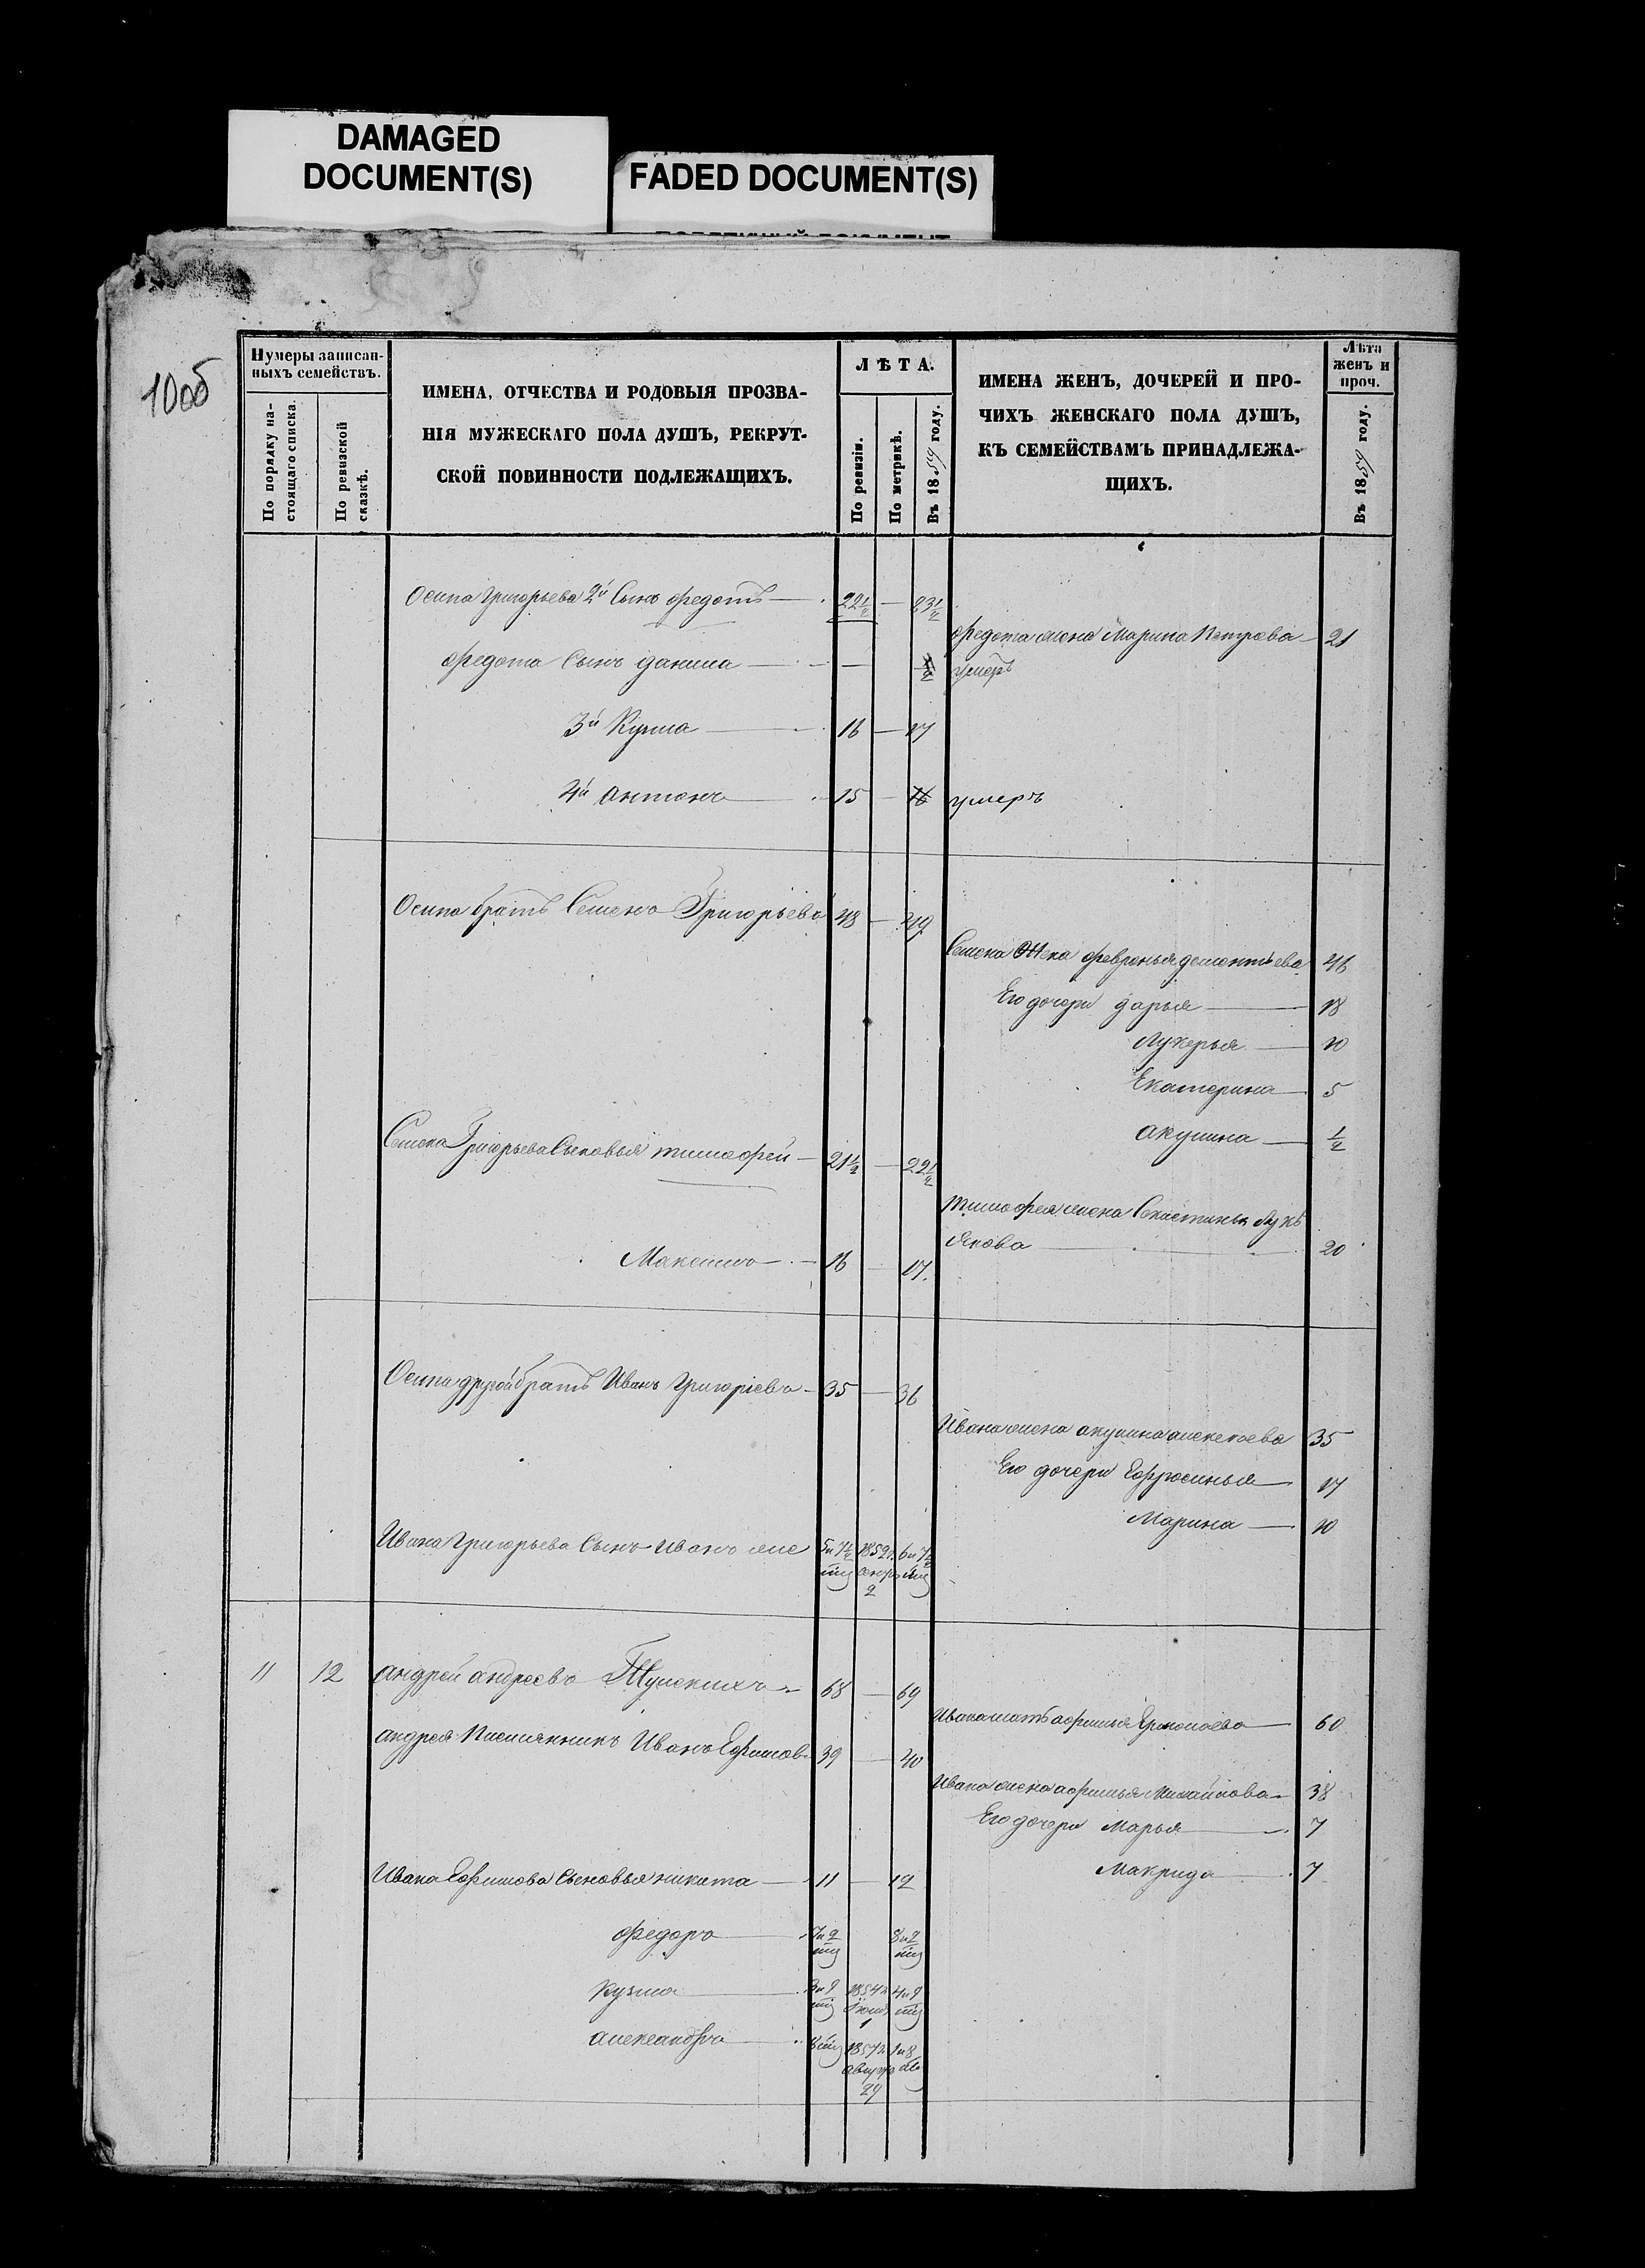 DAMAGED
DOCUMENT(S)
FADED DOCUMENT(S)
10об
Нумеры записан-
ныхъ семействъ.
По порядку на-
стоящаго списка.
По ревизской
сказкѣ.
ИМЕНА, ОТЧЕСТВА И РОДОВЫЯ ПРОЗВА-
НІЯ МУЖЕСКАГО ПОЛА ДУШЪ, РЕКРУТ-
СКОЙ ПОВИННОСТИ ПОДЛЕЖАЩИХЪ.
ЛѢТА.
По ревизіи.
По метрикѣ.
Въ 1859 году.
ИМЕНА ЖЕНЪ, ДОЧЕРЕЙ И ПРО-
ЧИХЪ ЖЕНСКАГО ПОЛА ДУШЪ,
КЪ СЕМЕЙСТВАМЪ ПРИНАДЛЕЖА-
ЩИХЪ.
Лѣта
женъ и
проч.
Въ 1859 году.
Осипа Григорьева 2й Сынъ федотъ — 22½ — 23½
федота жена Марина Петрова — 21
федота Сынъ данила — — ½ умеръ
3й Кузма — 16 — 17
4й антонъ — 15 — 16 умеръ
Осипа братъ Семенъ Григорьевъ 48 — 49
Семена жена февронья дементьева 46
Его дочери дарья — 18
Лукерья — 10
Екатерина — 5
акулина — ½
Семена Григорьева Сыновья тимофей — 21½ — 22½
тимофея жена Секлетинья Лукъ
янова — 20
Максимъ — 16 — 17.
Осипа другой братъ Иванъ Григорьевъ — 35 — 36
Ивана жена акулина алексеева 35
Его дочери Ефросинья — 17
Марина — 10
Ивана Григорьева Сынъ Иванъ же 5и7½ 1852г. 6и7½
мц сентр. мц
2
11 12 андрей андреевъ — 68 — 69
Ивана мать афимья Ермолаева — 60
андрея Племянникъ Иванъ Ефимовъ 39 — 40
Ивана жена афимья Михайлова — 38
Его дочери Марья — 7
Макрида — 7
Ивана Ефимова Сыновья никита — 11 — 12
федоръ — 7и2 8и2
мц мц
кузма — 3и9 1854г 4и9
мц Іюня мц
1
александръ — 8мц 1857г 1и8
августа мц
29